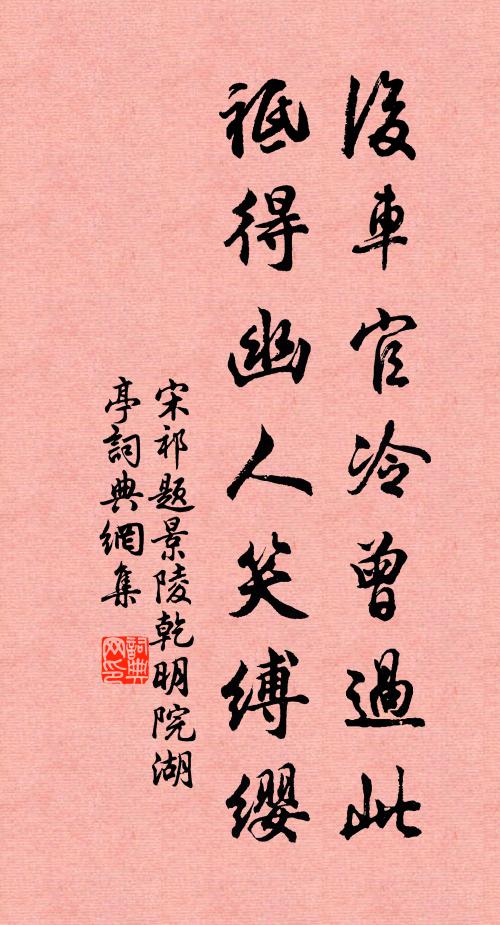 後車官冷曾過此
祗得幽人笑縛纓
宋祁題景陵乾明院湖
亭詞典網集
詞典
网印